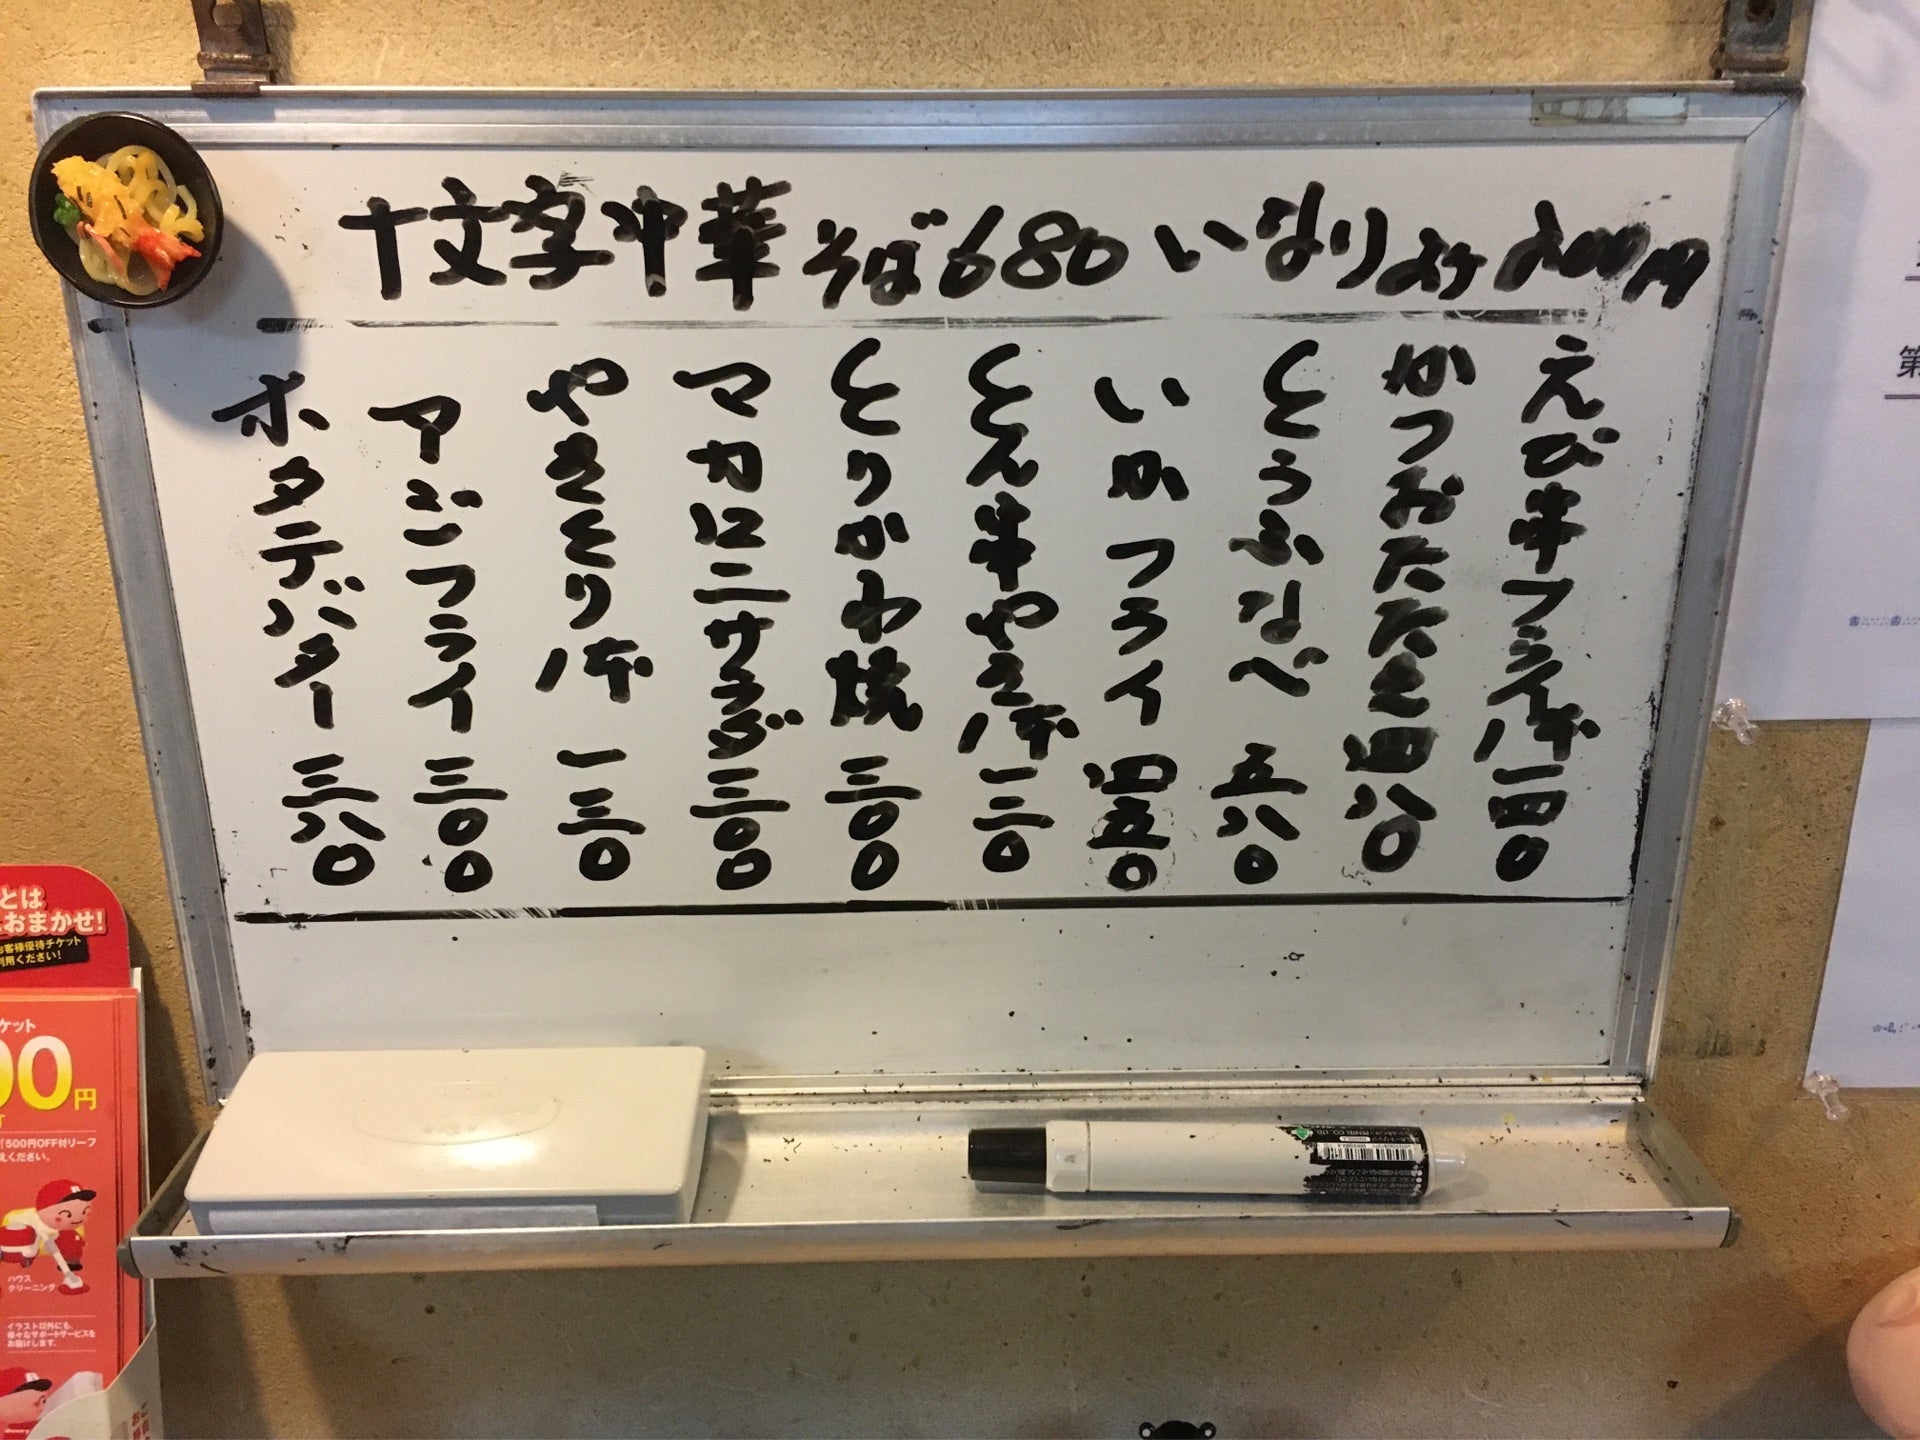 十文字中華そば680 いなり2ケ200円
えび串フライ1本一四0
かつおたたき四八0
とうふなべ 五八0
いかフライ 四五0
とん串やき1本一二0
とりかわ焼 三00
マカロニサラダ三00
やきとり1本 一三0
アジフライ 三00
ホタテバター 三八0
とは
おまかせ!
お客様優待チケット
利用ください!
ケット
00円
「500円OFF付リーフ
えください。
ハウス
クリーニング
イラスト以外にも、
様々なサポートサービスを
お届けします。
第